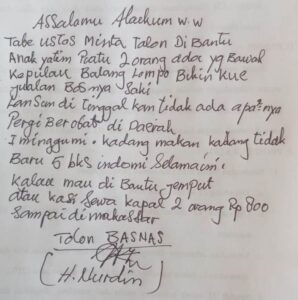 Assalamu Alaekum w.w
Tabe ustos Minta Tolon Di Bantu
Anak yatim Piatu 2 orang ada yg Bawa
Kepulau Balang Lompo Bikin Kue
Jualan BoSnya Saki
Lan Sun di Tinggal kan tidak ada apa²nya
Pergi Berobat di Daerah
1 minggumi. Kadang makan kadang tidak
Baru 5 bks indomi Selamaini.
Kalau mau di Bantu jemput
atau Kasi Sewa Kapal 2 orang Rp 800
Sampai di makassar
Tolon BASNAS
(H. Nurdin)